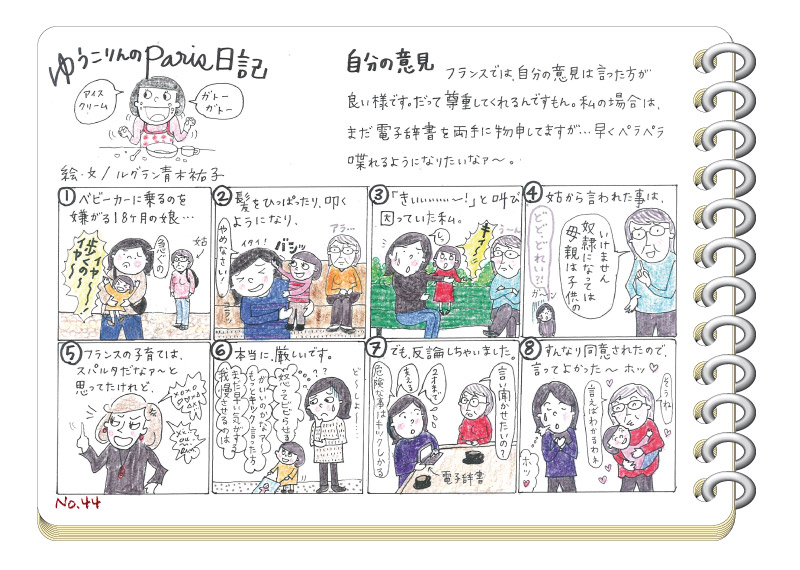 ゆうこりんのParis日記
アイス
クリーム
ガトー
ガトー
絵・文/ルグラン青木祐子
自分の意見
フランスでは、自分の意見は言った方が
良い様です。だって尊重してくれるんですもん。私の場合は、
まだ電子辞書を両手に物申してますが…早くペラペラ
喋れるようになりたいなァ〜。
①ベビーカーに乗るのを
嫌がる18ヶ月の娘…
姑
イヤ〜
歩くの〜
イヤ〜
②髪をひっぱったり、叩く
ようになり、
アラ…
イタイ!
バシッ
やめなさい!
③「きいぃぃぃぃ〜!」と叫び
困っていた私。
キィ〜
う〜ん
④姑から言われた事は、
母親は子供の
奴隷になっては
いけません
ど、ど、どれい?!
ガ〜ン
⑤フランスの子育ては、
スパルタだなァ〜と
思ってたけれど、
⑥本当に、厳しいです。
ど〜しよ…
怒ってビビらせる
もっとキツク言った方
がいいのかなァ〜
まだ早い気がする
我慢させるのは
⑦でも、反論しちゃいました。
言い聞かせたいの?
2才まで
危険な事はキツクしかる
電子辞書
⑧すんなり同意されたので、
言ってよかった〜 ホッ♥
そうね
言えばわかるわね
ホッ
No.44